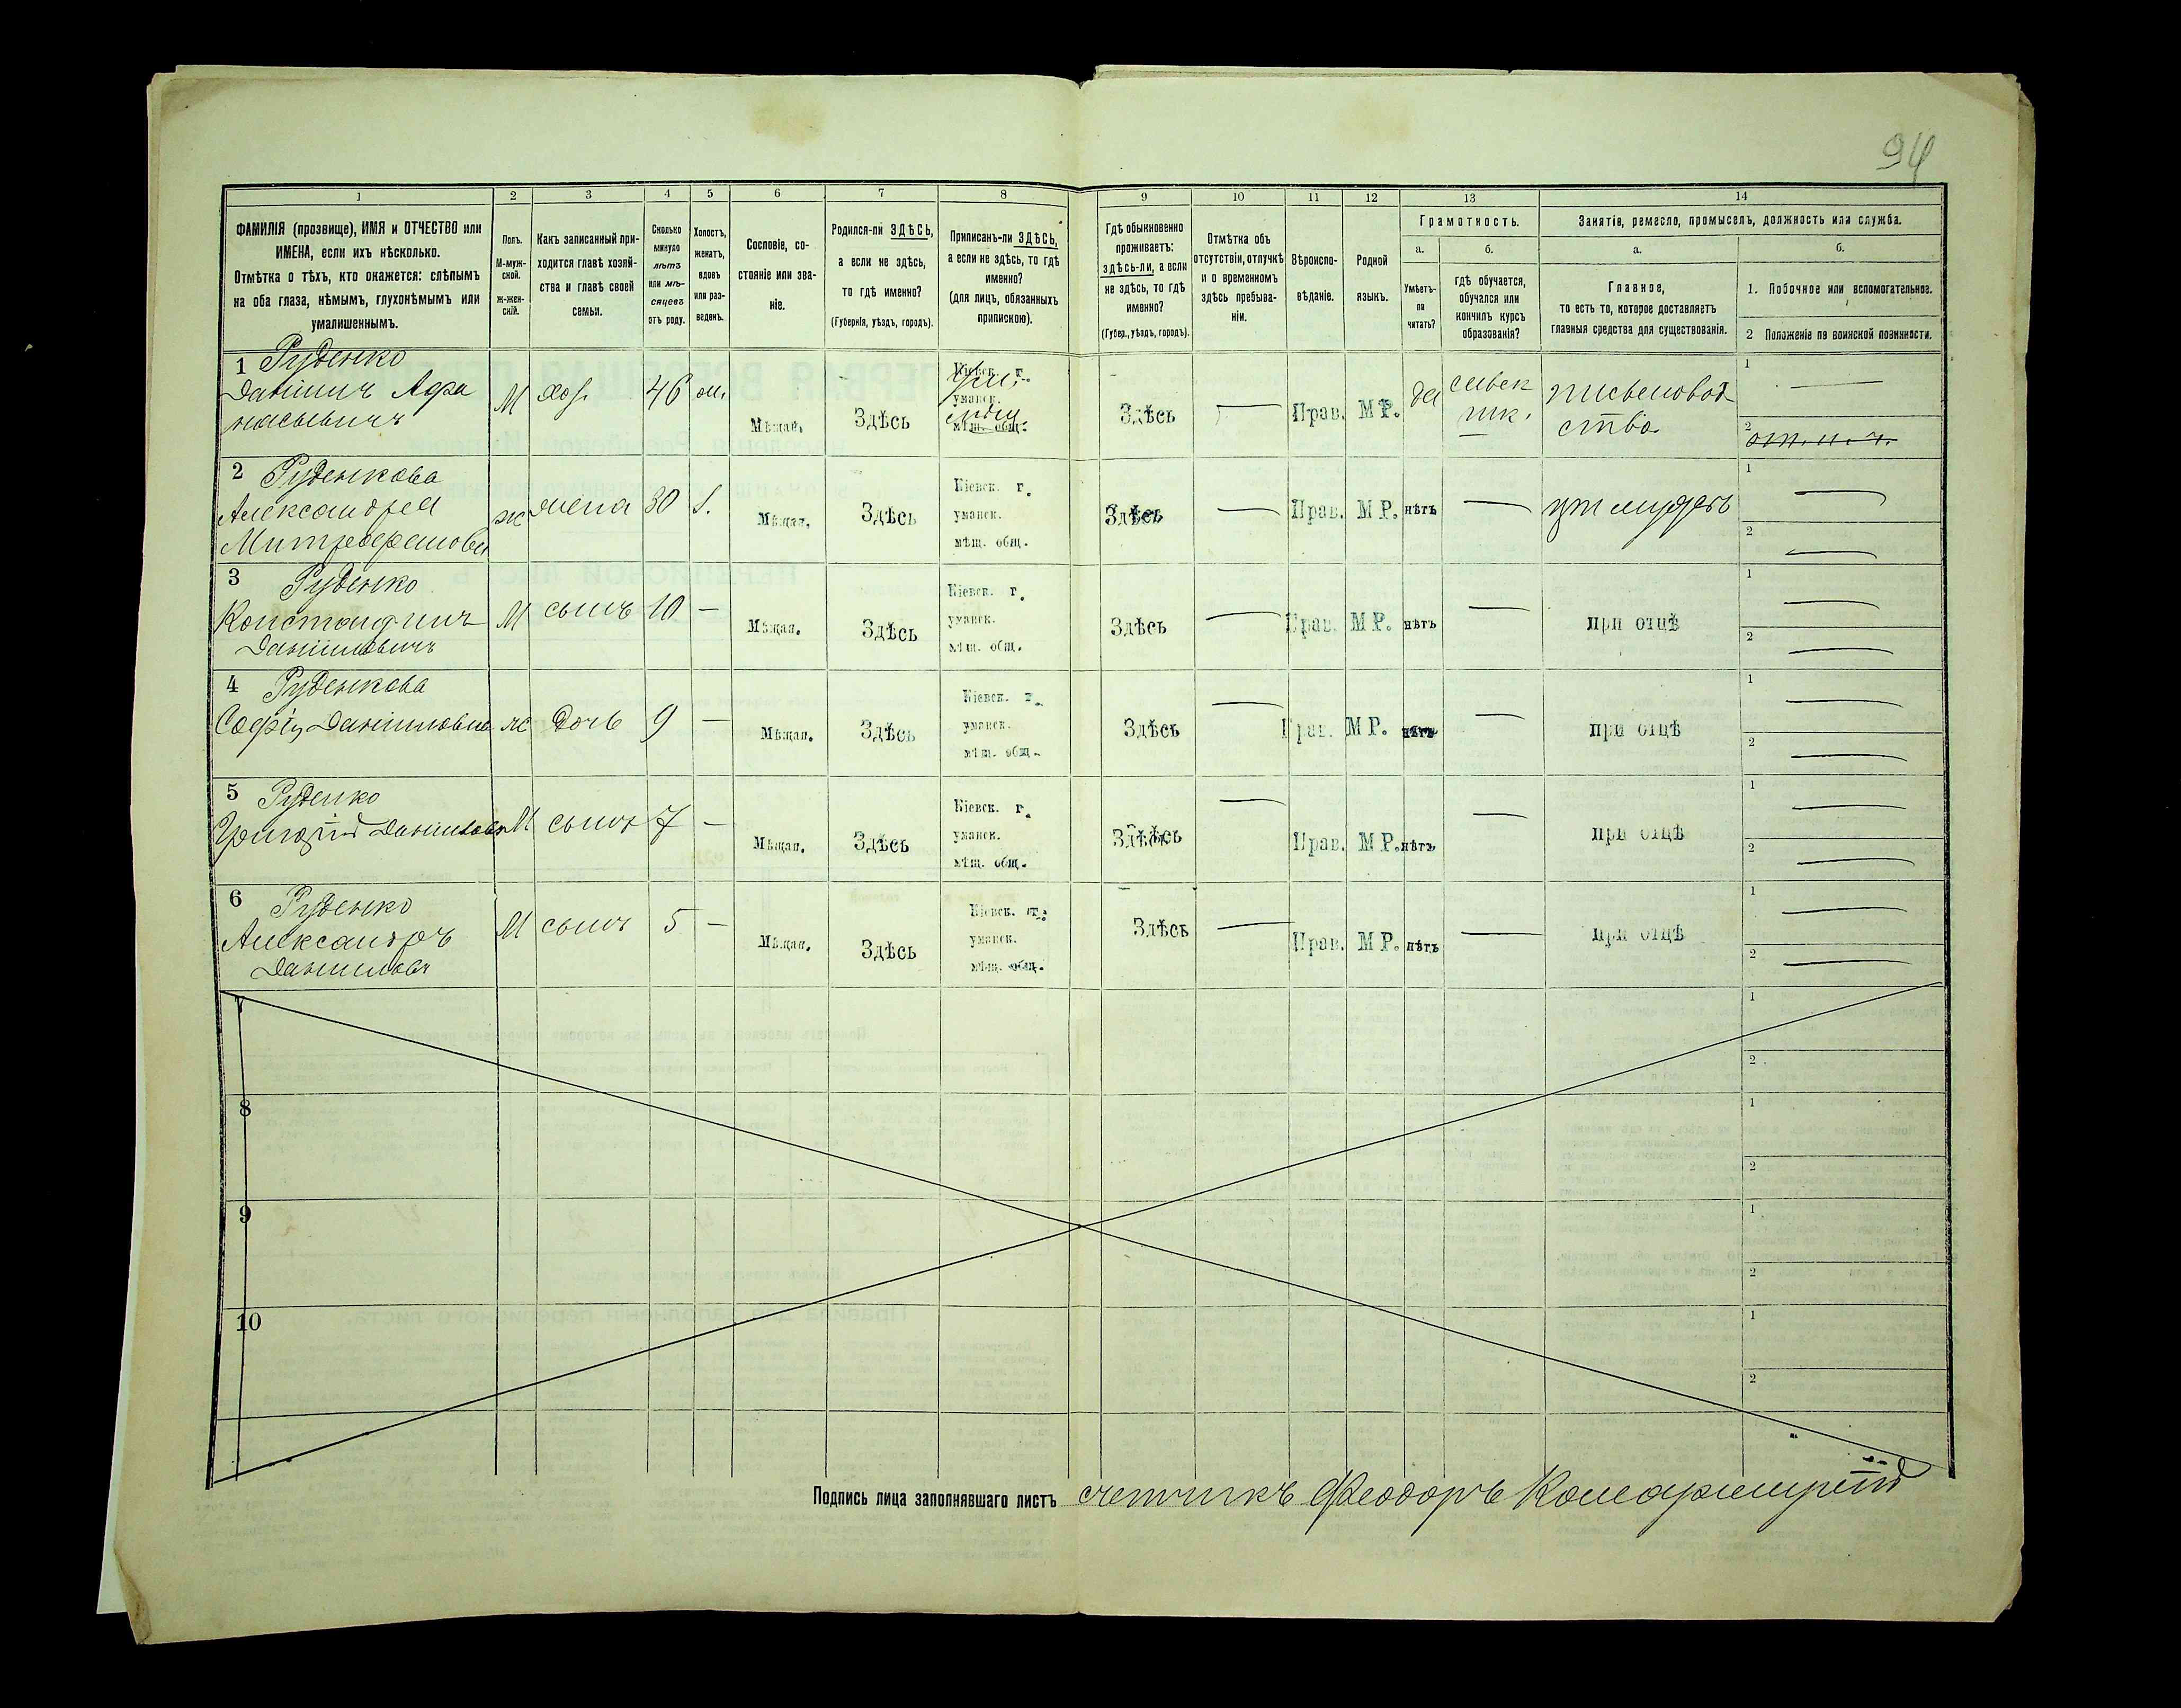 94
1
2
3
4
5
6
7
8
9
10
11
12
13
14
ФАМИЛІЯ (прозвище), ИМЯ и ОТЧЕСТВО или
ИМЕНА, если ихъ нѣсколько.
Отмѣтка о тѣхъ, кто окажется: слѣпымъ
на оба глаза, нѣмымъ, глухонѣмымъ или
умалишеннымъ.
Полъ.
М-муж-
ской.
Ж-жен-
скій.
Какъ записанный при-
ходится главѣ хозяй-
ства и главѣ своей
семьи.
Сколько
минуло
лѣтъ
или мѣ-
сяцевъ
отъ роду.
Холостъ,
женатъ,
вдовъ
или раз-
веденъ.
Сословіе, со-
стояніе или зва-
ніе.
Родился-ли ЗДѢСЬ,
а если не здѣсь,
то гдѣ именно?
(Губернія, уѣздъ, городъ).
Приписанъ-ли ЗДѢСЬ,
а если не здѣсь, то гдѣ
именно?
(для лицъ, обязанныхъ
припискою).
Гдѣ обыкновенно
проживаетъ:
здѣсь-ли, а если
не здѣсь, то гдѣ
именно?
(Губер., уѣздъ, городъ).
Отмѣтка объ
отсутствіи, отлучкѣ
и о временномъ
здѣсь пребыва-
ніи.
Вѣроиспо-
вѣданіе.
Родной
языкъ.
Грамотность.
а.
б.
Умѣетъ-
ли
читать?
гдѣ обучается,
обучался или
кончилъ курсъ
образованія?
Занятія, ремесло, промыселъ, должность или служба.
а.
б.
Главное,
то есть то, которое доставляетъ
главныя средства для существованія.
1. Побочное или вспомогательное.
2 Положеніе по воинской повинности.
1 Руденко
Даніилъ Афа
насьевичъ
М
хоз.
46
Мѣщан.
Здѣсь
Кіевск. г.
уманск.
мѣщ. общ.
Здѣсь
—
Прав.
М Р.
да
шк.
письмовод
ство
1 —
2 от. н. ч.
2 Руденкова
Александра
ж
жена
30
Мѣщан.
Здѣсь
Кіевск. г.
уманск.
мѣщ. общ.
Здѣсь
—
Прав.
М Р.
нѣтъ
—
1 —
2 —
3 Руденко
Константинъ
Даніиловичъ
М
сынъ
10
—
Мѣщан.
Здѣсь
Кіевск. г.
уманск.
мѣщ. общ.
Здѣсь
—
Прав.
М Р.
нѣтъ
—
при отцѣ
1 —
2 —
4 Руденкова
Софія Даніиловна
ж
дочь
9
—
Мѣщан.
Здѣсь
Кіевск. г.
уманск.
мѣщ. общ.
Здѣсь
—
Прав.
М Р.
нѣтъ
—
при отцѣ
1 —
2 —
5 Руденко
Григорій Даніиловъ
М
сынъ
7
—
Мѣщан.
Здѣсь
Кіевск. г.
уманск.
мѣщ. общ.
Здѣсь
—
Прав.
М Р.
нѣтъ
—
при отцѣ
1 —
2 —
6 Руденко
Александръ
Данилов
М
сынъ
5
—
Мѣщан.
Здѣсь
Кіевск. г.
уманск.
мѣщ. общ.
Здѣсь
—
Прав.
М Р.
нѣтъ
—
при отцѣ
1 —
2 —
7
1
2
8
1
2
9
1
2
10
1
2
Подпись лица заполнявшаго листъ счетчикъ Феодоръ